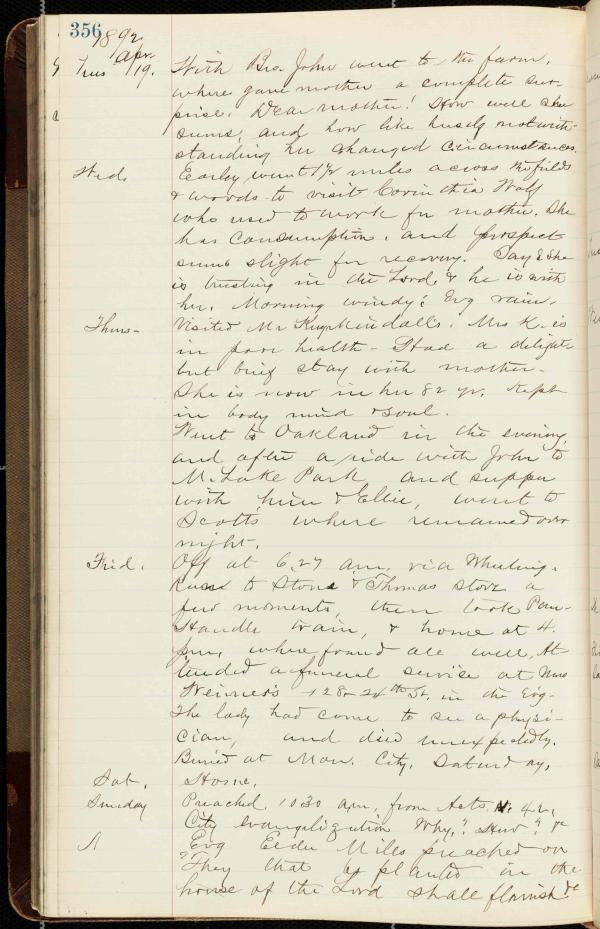 356
1892
Apr.
Tues 19. With Bro. John went to the farm,
where gave mother a complete sur-
prise. Dear mother! How well she
seems, and how like herself notwith-
standing her changed circumstances.
Wed. Early went 1 1/2 miles across the fields
& woods to visit Corinthia Wolf
who used to work for mother. She
has consumption, and prospect
seems slight for recovery. Say & she
is trusting in the Lord, & he is with
her. Morning windy; Evg rain.
Thurs- Visited Mr Kuykindalls. Mrs K. is
in poor health - Had a delight
but brief stay with mother.
She is now in her 82 yr. Kept
in body mind & soul.
Went to Oakland in the evening,
and after a ride with John to
Mt Lake Park and supper
with him & Ellie, went to
Scott's where remained over
night.
Frid. Off at 6.27 am, via Wheeling.
to Stone & Thomas store a
few moments, then took Pan-
Handle train, & home at 4.
pm, where found all well. At-
tended a funeral service at Mrs
Weimer's 128- 24th St. in the Evg-
The lady had come to see a physi-
cian, and died unexpectedly.
Buried at Mon. City, Saturday,
Sat. Home.
Sunday Preached 10 30 am, from Acts 4
City evangelization Why? How? &c
Evg Elder Miles preached on
"They that be planted in the
house of the Lord shall flourish &c